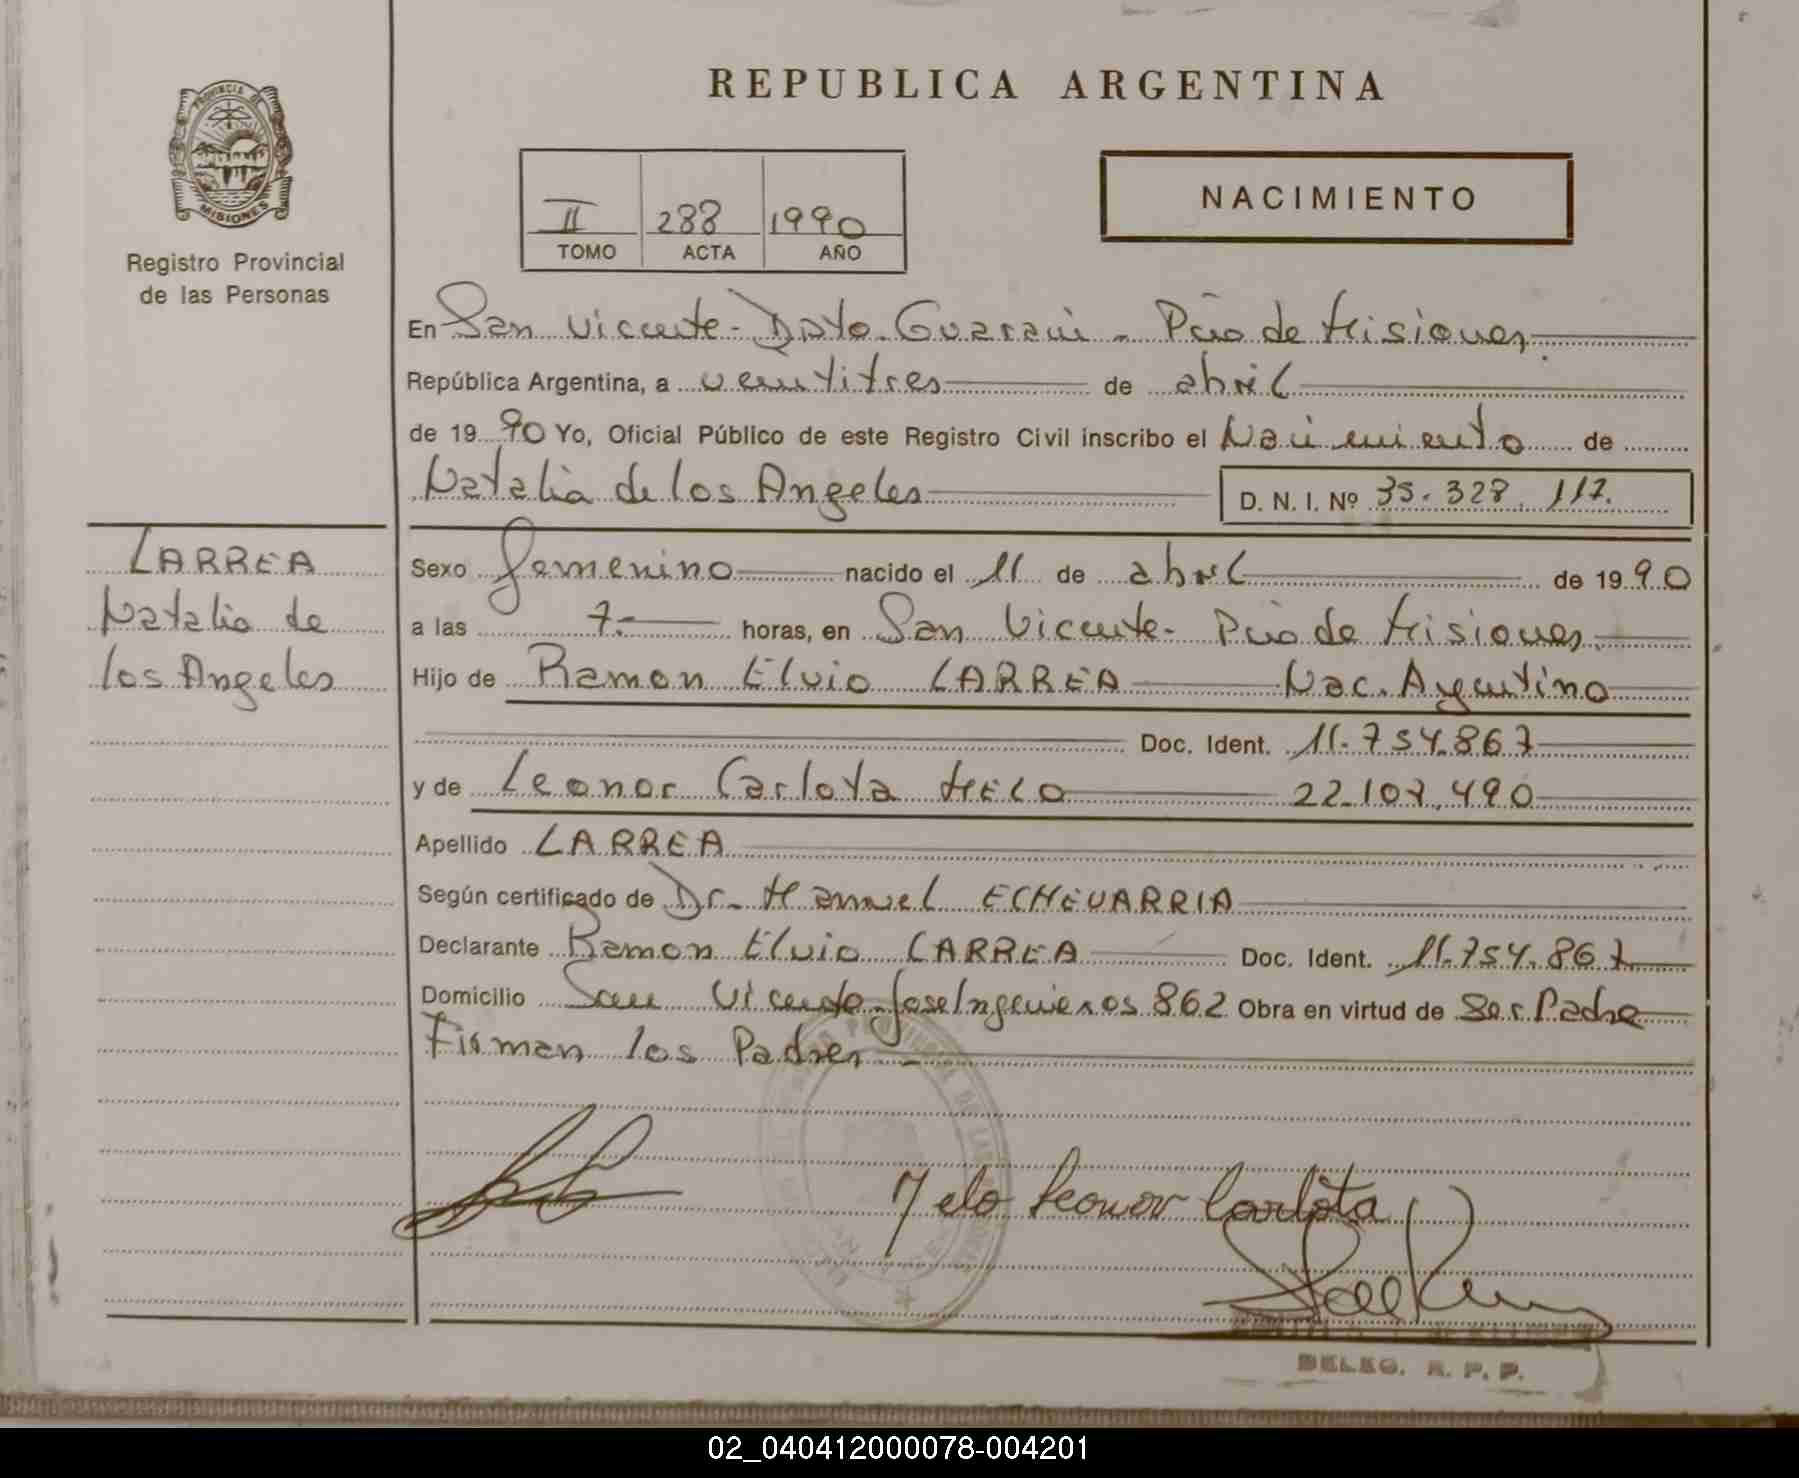 REPUBLICA ARGENTINA
PROVINCIA DE
MISIONES
Registro Provincial
de las Personas
II 288 1990
TOMO ACTA AÑO
NACIMIENTO
En San Vicente - Dpto. Guaraní - Pcia de Misiones
República Argentina, a veintitres de abril
de 1990 Yo, Oficial Público de este Registro Civil inscribo el Nacimiento de
Natalia de los Angeles D. N. I. Nº 35.328.117.
LARREA
Natalia de
los Angeles
Sexo Femenino nacido el 11 de abril de 1990
a las 7.- horas, en San Vicente - Pcia de Misiones
Hijo de Ramon Elvio LARREA Nac. Argentino
Doc. Ident. 11.754.867
y de Leonor Carlota MELO 22.107.490
Apellido LARREA
Según certificado de Dr. Manuel ECHEVARRIA
Declarante Ramon Elvio LARREA Doc. Ident. 11.754.867
Domicilio San Vicente - Jose Ingenieros 862 Obra en virtud de Ser Padre
Firman los Padres -
Melo Leonor Carlota
DELEG. R. P. P.
02_040412000078-004201